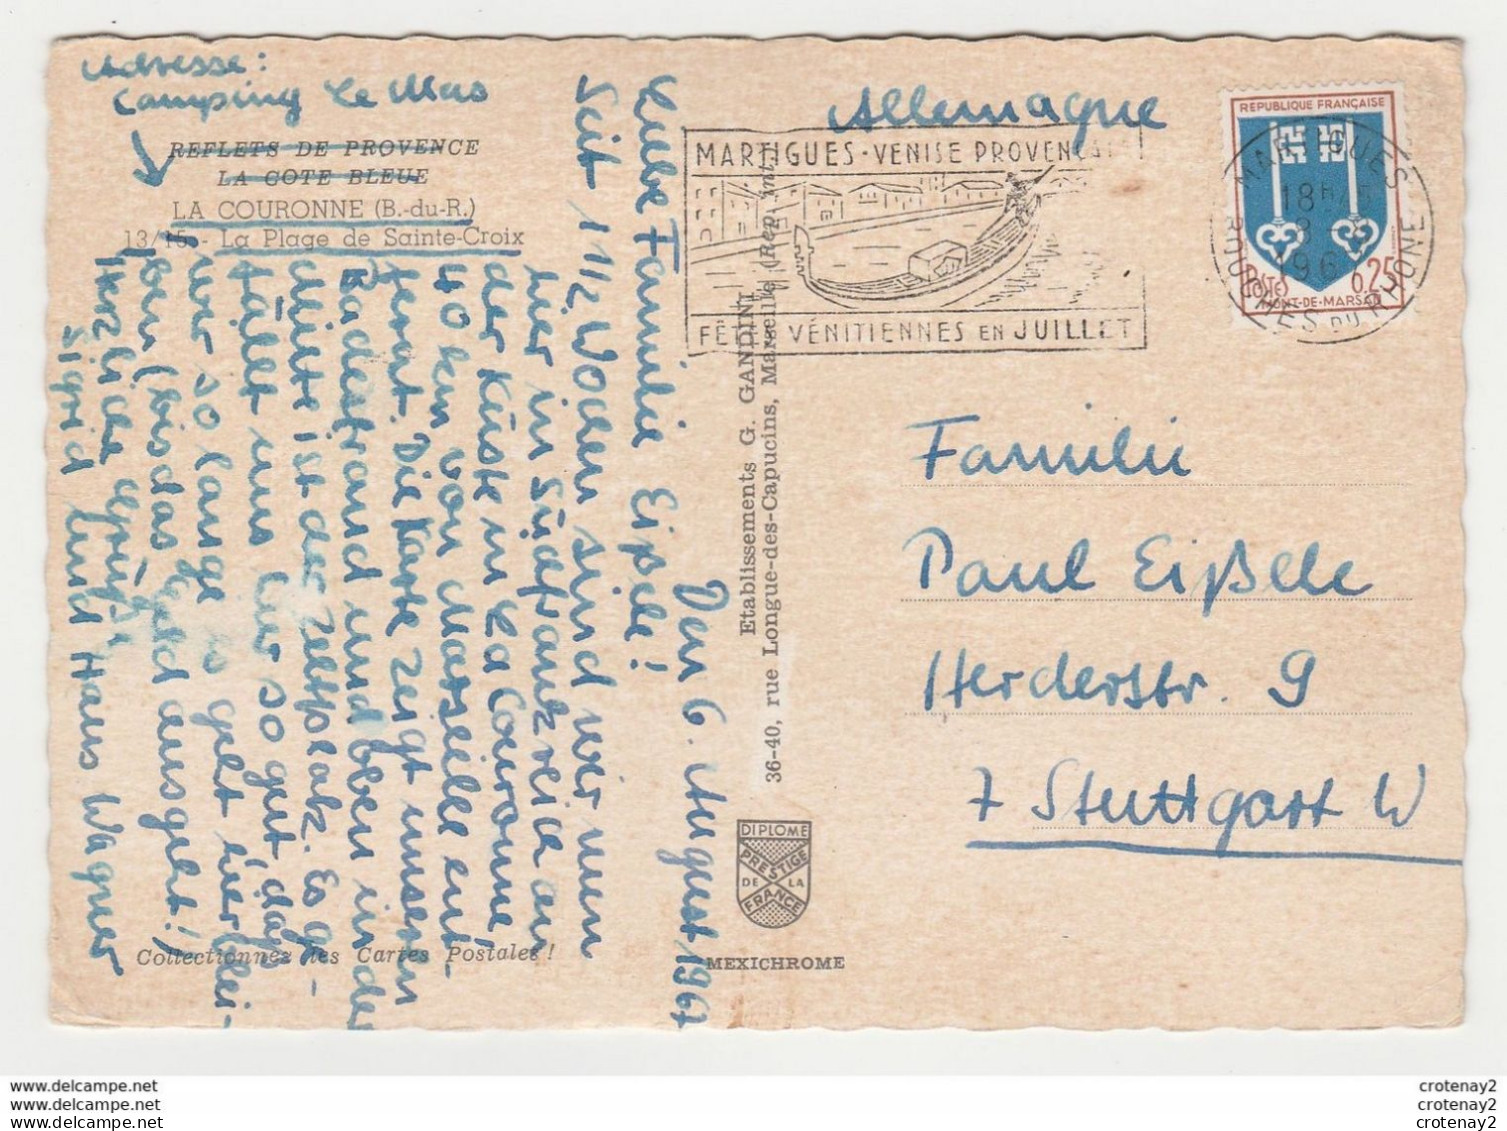 Adresse:
Camping Le Mas
REFLETS DE PROVENCE
LA COTE BLEUE
LA COURONNE (B.-du-R.)
13/15 - La Plage de Sainte-Croix
Den 6. August 1967
Liebe Familie Eißele!
Seit 1 1/2 Wochen sind wir nun
hier in Südfrankreich an
der Küste in La Couronne,
40 km von Marseille ent-
fernt. Die Karte zeigt unseren
Badestrand und oben in der
Mitte ist der Zeltplatz. Es ge-
fällt uns hier so gut, daß
wir so lange es geht hier blei-
ben (bis das Geld ausgeht!)
Herzliche Grüße
Sigrid und Hans Wagner
Collectionnez les Cartes Postales !
Etablissements G. GANDINI
36-40, rue Longue-des-Capucins, Marseille (Rep. int.)
DIPLOME
PRESTIGE
DE LA
FRANCE
MEXICHROME
Allemagne
MARTIGUES - VENISE PROVENÇA
FÊTES VÉNITIENNES EN JUILLET
REPUBLIQUE FRANÇAISE
POSTES 0,25
MONT-DE-MARSAN
MARTIGUES
18H
8
196
BOUCHES DU RHONE
Familie
Paul Eißele
Herderstr. 9
7 Stuttgart W
www.delcampe.net
www.delcampe.net
www.delcampe.net
crotenay2
crotenay2
crotenay2